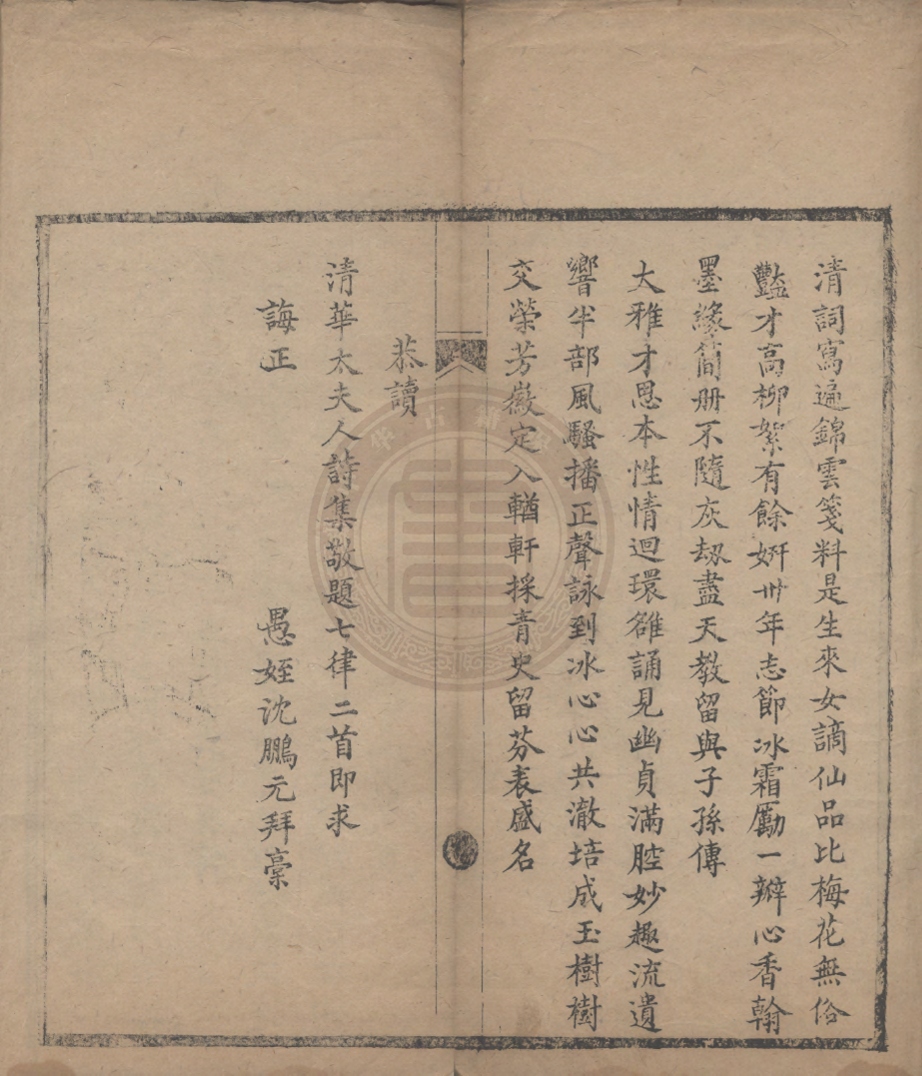 清詞寫遍錦雲箋料是生來女謫仙品比梅花無俗
豔才高柳絮有餘姸卅年志節冰霜勵一瓣心香翰
墨緣簡册不隨灰刼盡天教留與子孫傳
大雅才思本性情迴環雒誦見幽貞滿腔妙趣流遺
響半部風騷播正聲詠到冰心心共澈培成玉樹樹
交榮芳徽定入輶軒採青史留芬表盛名
恭讀
清華太夫人詩集敬題七律二首即求
誨正
愚姪沈鵬元拜稾